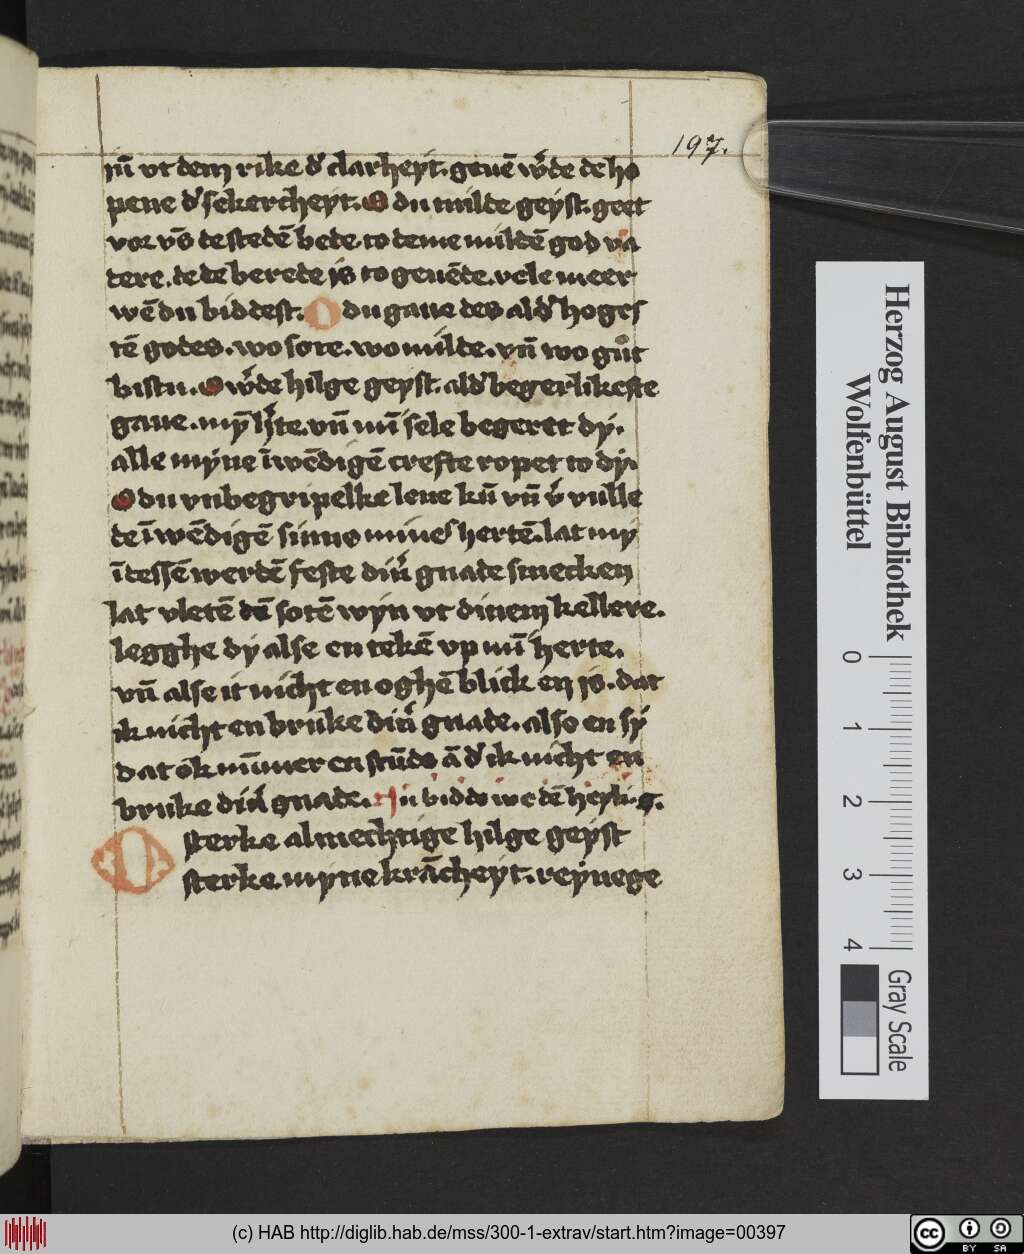 197.
in̄ vt dem rike d' clarheyt. geuē w'de dē ho
pene d' sekercheyt. O du milde geyst. geet
vor vō testedē bede. to deme mildē god va
tere. de de berede is to geuēde. vele meer
wē du biddest. O du gaue des ald' hoges
tē godes. wo sote. wo milde. vn̄ wo gůt
bistu. O w'de hilge geyst. ald' begerlikeste
gaue. myn̄ h'te. vn̄ mī sele begeret dy.
alle myne īwēdigē crefte ropet to dy.
O du vnbegripelke leue kū vn̄ v' vulle
de īwēdigē sinne mines hertē. lat my
ī dessē werdē feste din' gnade smecken
lat vletē dē sotē wyn vt dinem kellere.
legghe dy alse en tekē vp mī herte.
vn̄ alse it nicht en oghē blick en is. dat
ik nicht en bruke din' gnade. also en sy
dat ōk nūmer en stūde ā d' ik nicht en
bruke din' gnade. In bidde we dē heyli. g.
O sterke almechtige hilge geyst
sterke. myne krācheyt. reynege
Herzog August Bibliothek
Wolfenbüttel
0 1 2 3 4
Gray Scale
(c) HAB http://diglib.hab.de/mss/300-1-extrav/start.htm?image=00397
cc BY SA